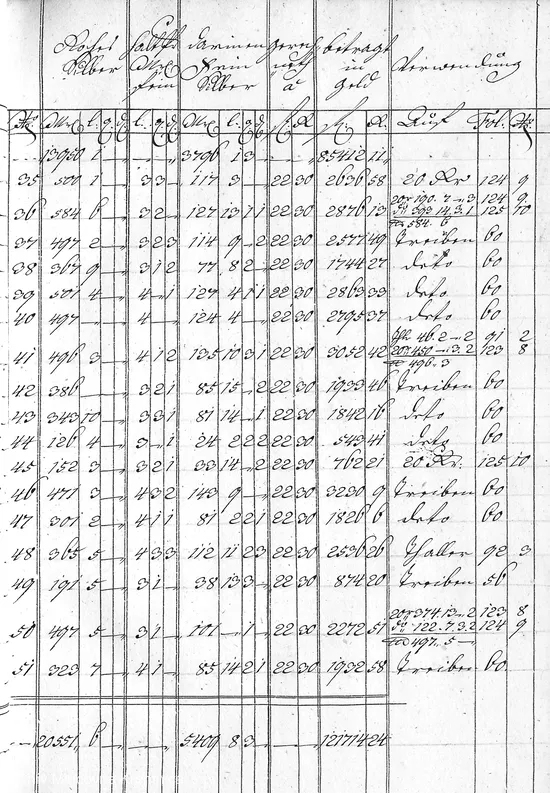 Roches haltest darinen gerech betragt
Silber Mx fein neth in Verwendung
fein Silber à Geld
No Mx l. q d l. q d Mx l. q d f x f x Auf Fol. No
13950 1 — — 3796 13 — — 85412 11
35 500 1 — 3 3 — 117 3 — 22 30 2636 58 20 Xr 124 9
20r 190. 7 — 3 124 9
36 584 6 — 3 2 — 127 13 1 1 22 30 2876 13 393 14. 3. 1 125 10
584. 6
37 497 2 — 3 2 3 114 9 — 2 22 30 2577 49 Treiben 60
38 367 9 — 3 1 2 77 8 2 22 30 1744 27 deto 60
39 501 4 — 4 — 1 127 4 1 1 22 30 2863 33 deto 60
40 497 — 4 — 124 4 — 22 30 2795 37 deto 60
46. 2 — 2 91 2
41 496 3 — 4 1 2 135 10 3 1 22 30 3052 42 20r 450 — 3. 2 123 8
496. 3
42 386 — 3 2 1 85 15 — 2 22 30 1933 46 Treiben 60
43 343 10 — 3 3 1 81 14 — 1 22 30 1842 16 deto 60
44 126 4 — 3 — 1 24 2 2 2 22 30 543 41 deto 60
45 152 3 — 3 2 1 33 14 — 2 22 30 762 21 20 Xr. 125 10
46 471 3 — 4 3 2 143 9 — 22 30 3230 9 Treiben 60
47 301 2 — 4 1 1 81 2 2 1 22 30 1826 6 deto 60
48 365 5 — 4 3 3 112 11 2 3 22 30 2536 26 Thaller 92 3
49 191 5 — 3 1 — 38 13 3 — 22 30 874 20 Treiben 56
20r 374. 13 — 2 123 8
50 497 5 — 3 1 — 101 — 1 — 22 30 2272 51 122. 7. 3. 2 124 9
497. 5 —
51 323 7 — 4 1 — 85 14 2 1 22 30 1932 58 Treiben 60.
— 20551 6 — — 5409 8 3 — — 121714 24